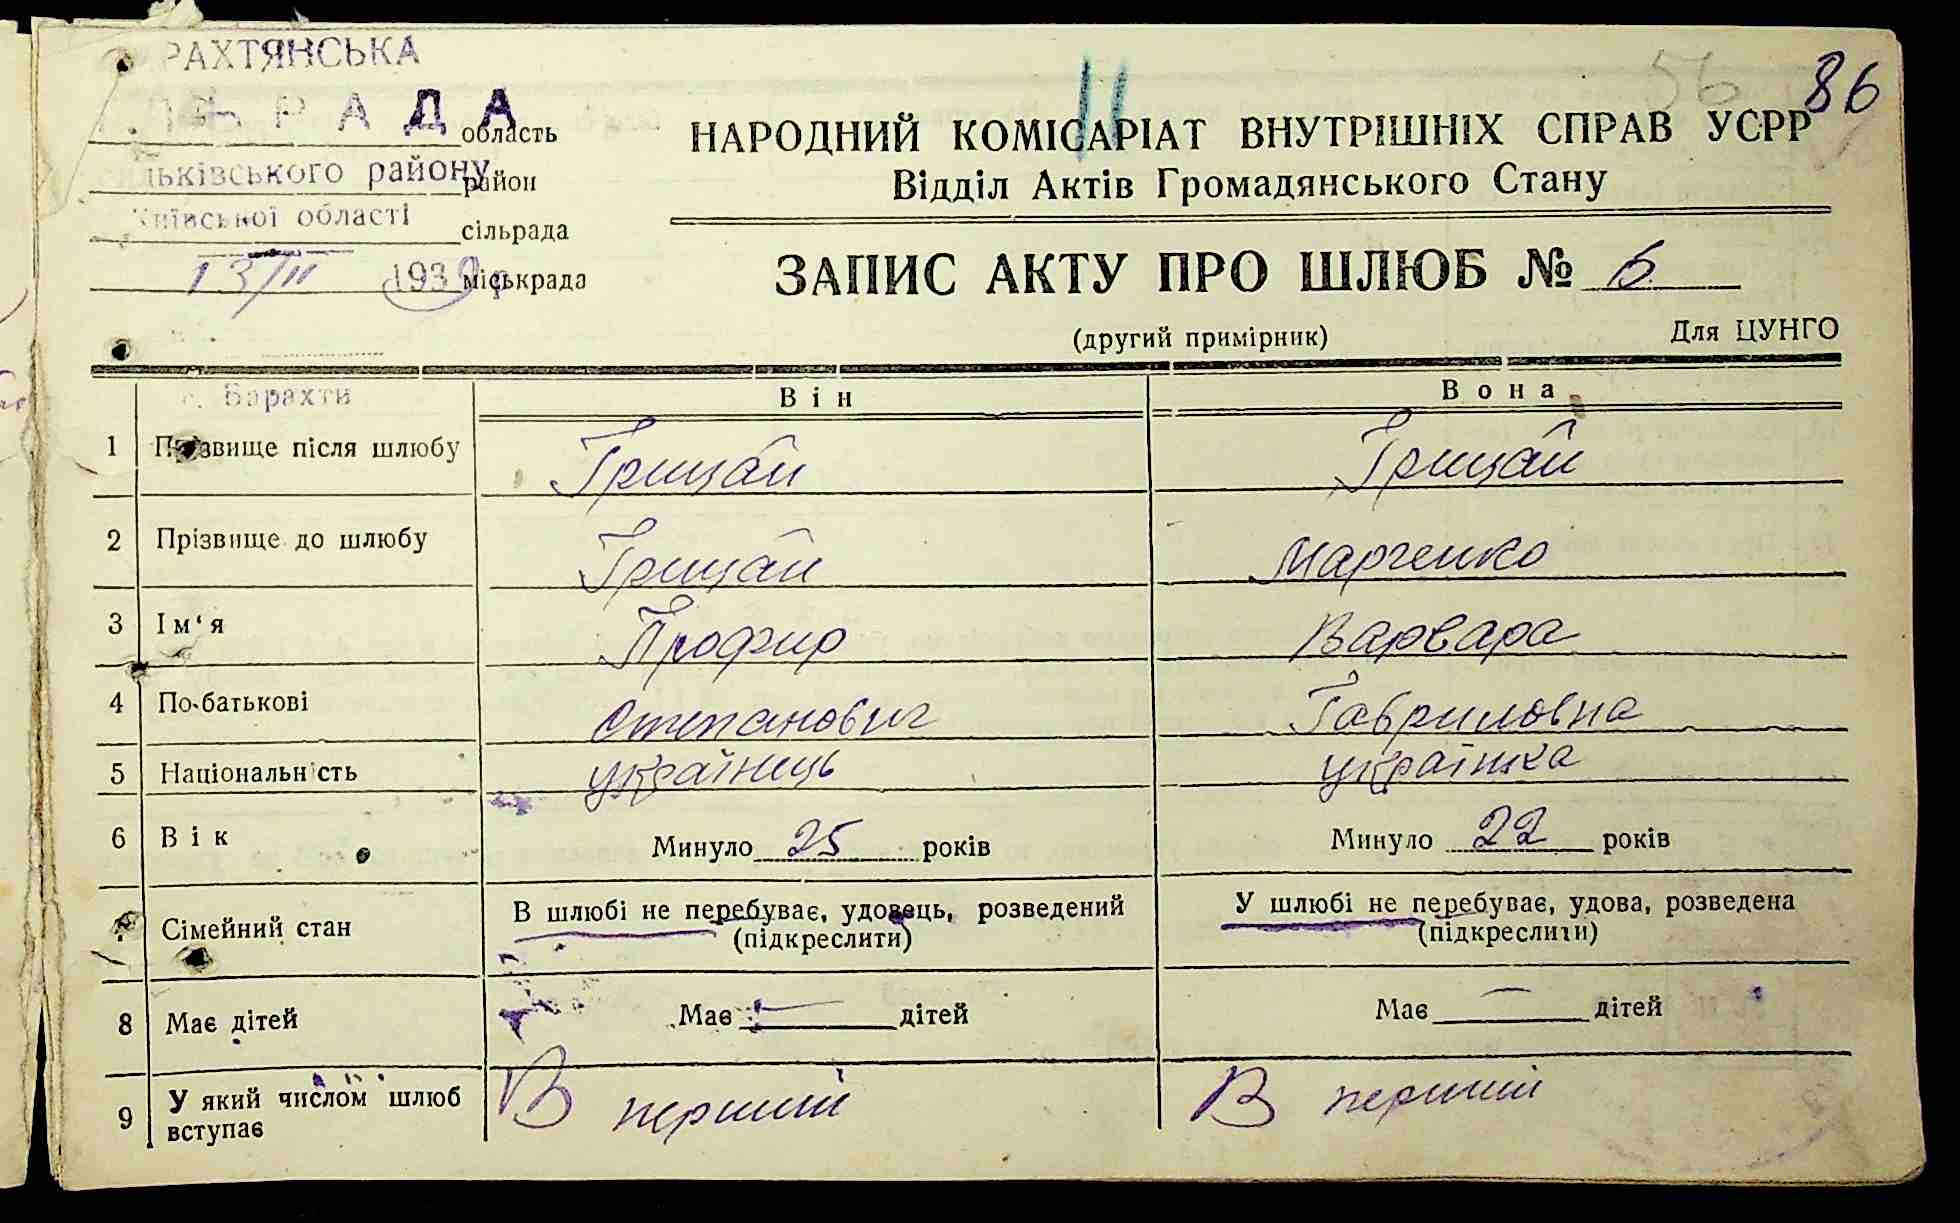 РАХТЯНСЬКА
РАДА
область
ківського району
район
Київської області
сільрада
13/II 1939
міськрада
с. Барахти
11
56
86
НАРОДНИЙ КОМІСАРІАТ ВНУТРІШНІХ СПРАВ УСРР
Відділ Актів Громадянського Стану
ЗАПИС АКТУ ПРО ШЛЮБ №
(другий примірник)
Для ЦУНГО
Він
Вона
1 Прізвище після шлюбу Грицай Грицай
2 Прізвище до шлюбу Грицай Марченко
3 Ім‘я Профир Варвара
4 По-батькові Степанович Гавриловна
5 Національність українець українка
6 Вік Минуло 25 років Минуло 22 років
Сімейний стан В шлюбі не перебуває, удовець, розведений У шлюбі не перебуває, удова, розведена
(підкреслити) (підкреслити)
8 Має дітей Має — дітей Має — дітей
9 У який числом шлюб вступає В перший В перший